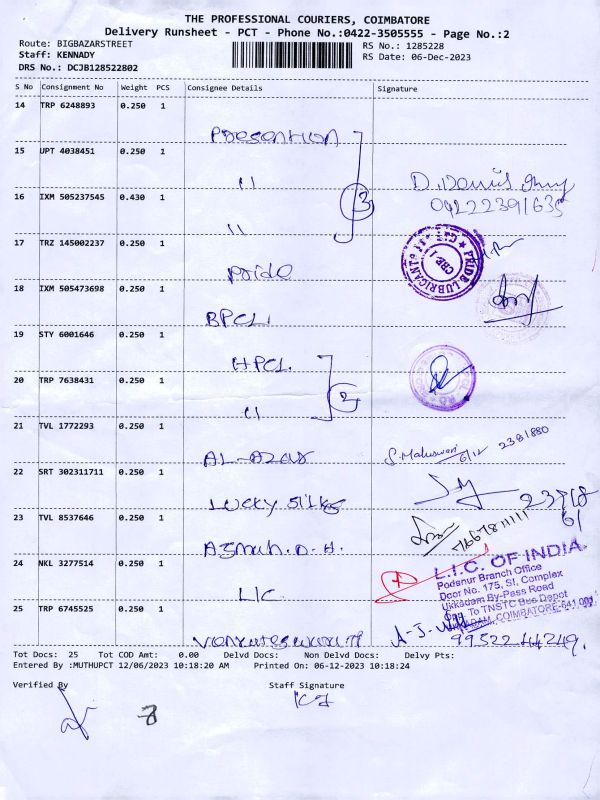 THE PROFESSIONAL COURIERS, COIMBATORE
Delivery Runsheet - PCT - Phone No.:0422-3505555 - Page No.:2
Route: BIGBAZARSTREET RS No.: 1285228
Staff: KENNADY RS Date: 06-Dec-2023
DRS No.: DCJB128522802
S No Consignment No Weight PCS Consignee Details Signature
14 TRP 6248893 0.250 1
15 UPT 4038451 0.250 1
"
16 IXM 505237545 0.430 1
3
04222391635
"
17 TRZ 145002237 0.250 1
PRIDE LUBRICANTS
CBE
Pride
18 IXM 505473698 0.250 1
BPCL.
19 STY 6001646 0.250 1
HPCL.
20 TRP 7638431 0.250 1
2
"
21 TVL 1772293 0.250 1
AL-AZAR
6/12 2391880
22 SRT 302311711 0.250 1
Lucky Silks
23 TVL 8537646 0.250 1
7667811111
24 NKL 3277514 0.250 1
LIC
L.I.C. OF INDIA
Podanur Branch Office
Door No. 175, S.I. Complex
Ukkadam By-Pass Road
Opp. To TNSTC Bus Depot
UKKADAM, COIMBATORE-641 001
25 TRP 6745525 0.250 1
99522 44249.
Tot Docs: 25 Tot COD Amt: 0.00 Delvd Docs: Non Delvd Docs: Delvy Pts:
Entered By :MUTHUPCT 12/06/2023 10:18:20 AM Printed On: 06-12-2023 10:18:24
Verified By Staff Signature